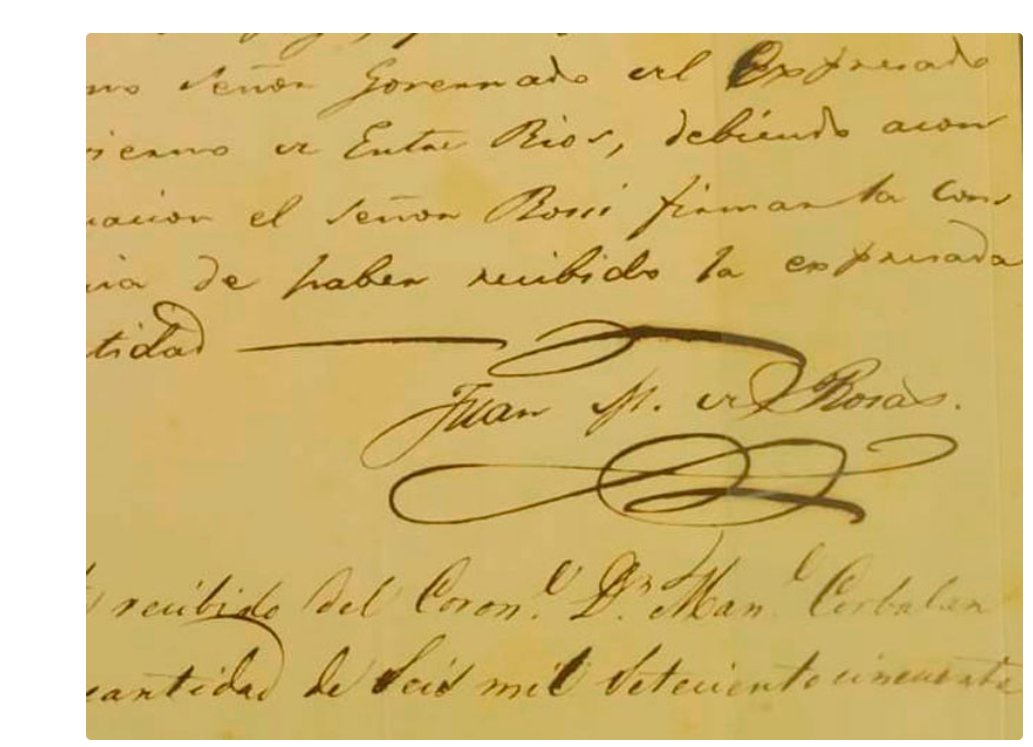 mo señor Governado del Expresado
vierno de Entre Rios, debiendo acon
uacion el señor Rossi firmar la cons
cia de haber recibido la expresada
tidad
Juan M. de Rosas.
recibido del Coron.l Dn. Man.l Corbalan
cantidad de Seis mil Setecientocincuenta